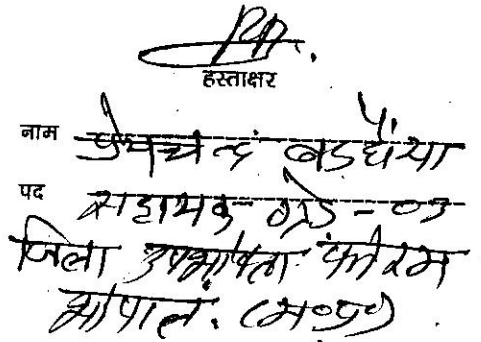 हस्ताक्षर
नाम प्रेमचन्द्र बड़घैया
पद सहायक ग्रेड-03
जिला उपभोक्ता फोरम
भोपाल. (म०प्र०)